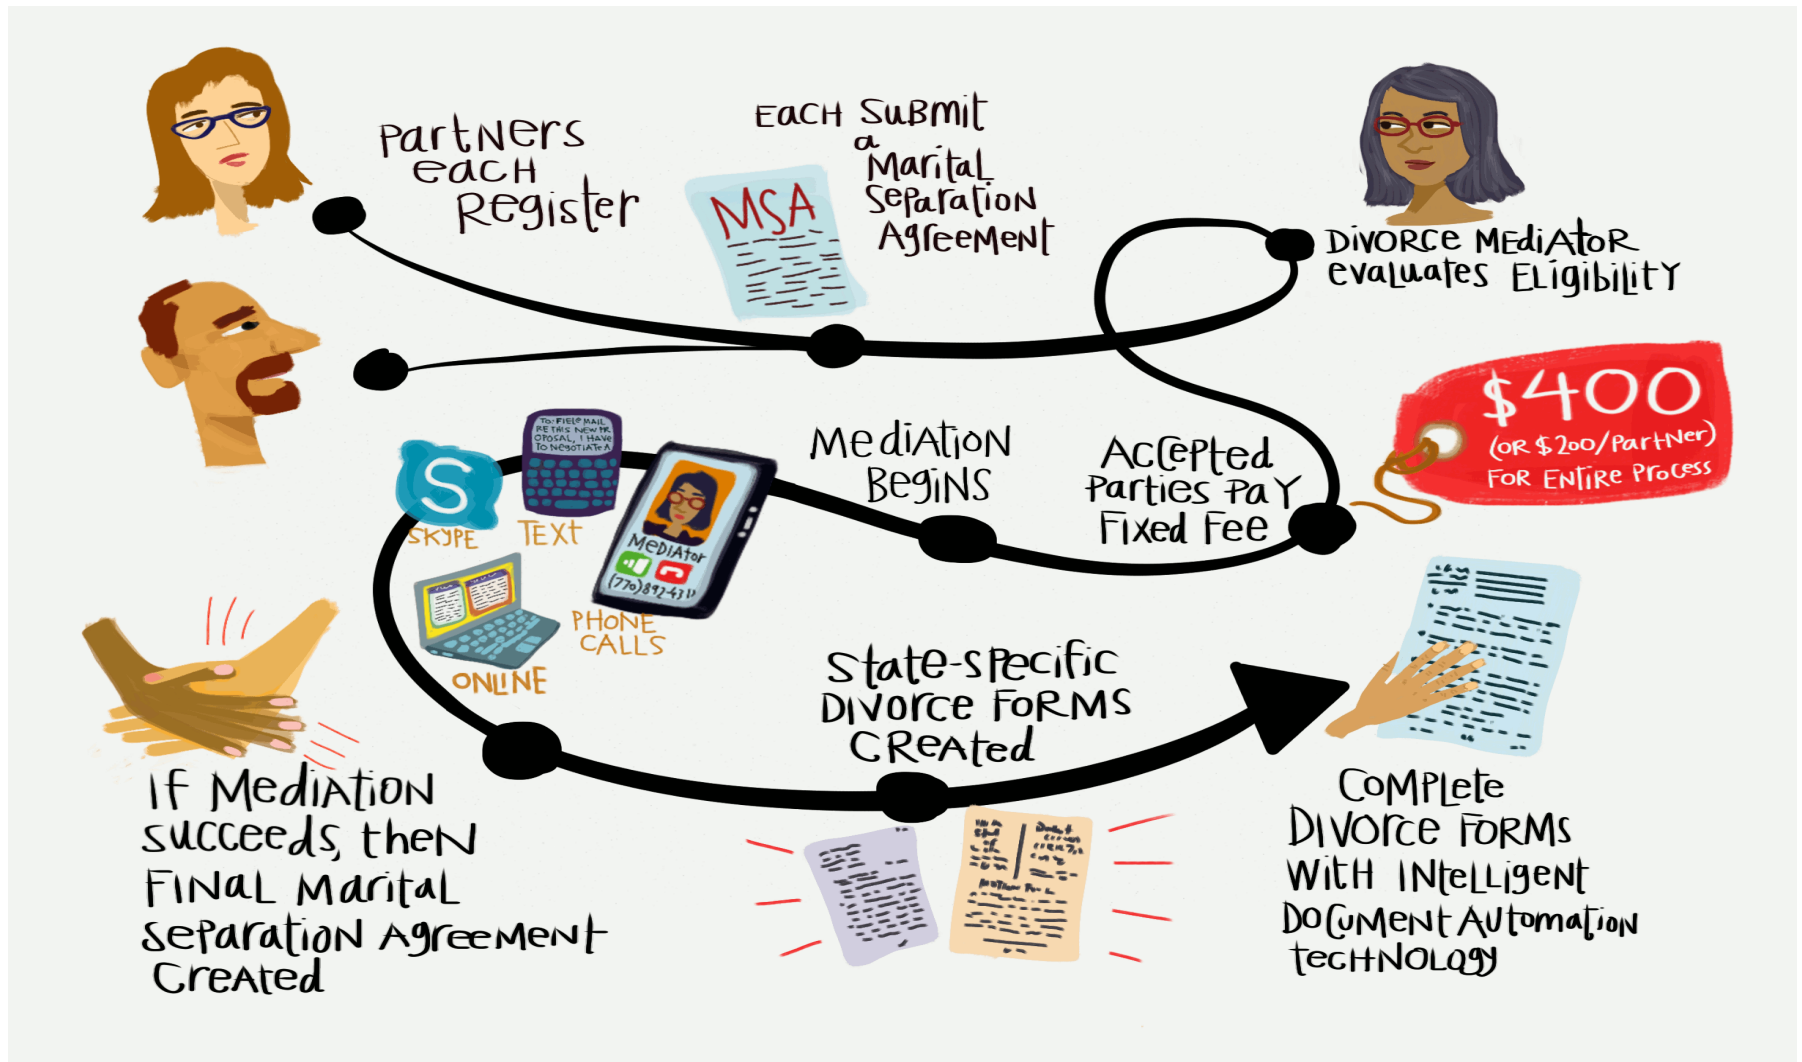 Partners
each
Register
Each Submit
a
Marital
Separation
Agreement
MSA
Divorce Mediator
evaluates Eligibility
$400
(or $200/Partner)
for Entire Process
Accepted
Parties Pay
Fixed Fee
Mediation
Begins
S
Skype
To: Field Mail
Re this new pr
oposal, I have
to negotiate a
Text
Mediator
Phone
Calls
Online
If Mediation
succeeds, then
Final Marital
Separation Agreement
Created
State-specific
Divorce Forms
Created
Complete
Divorce Forms
with Intelligent
Document Automation
Technology